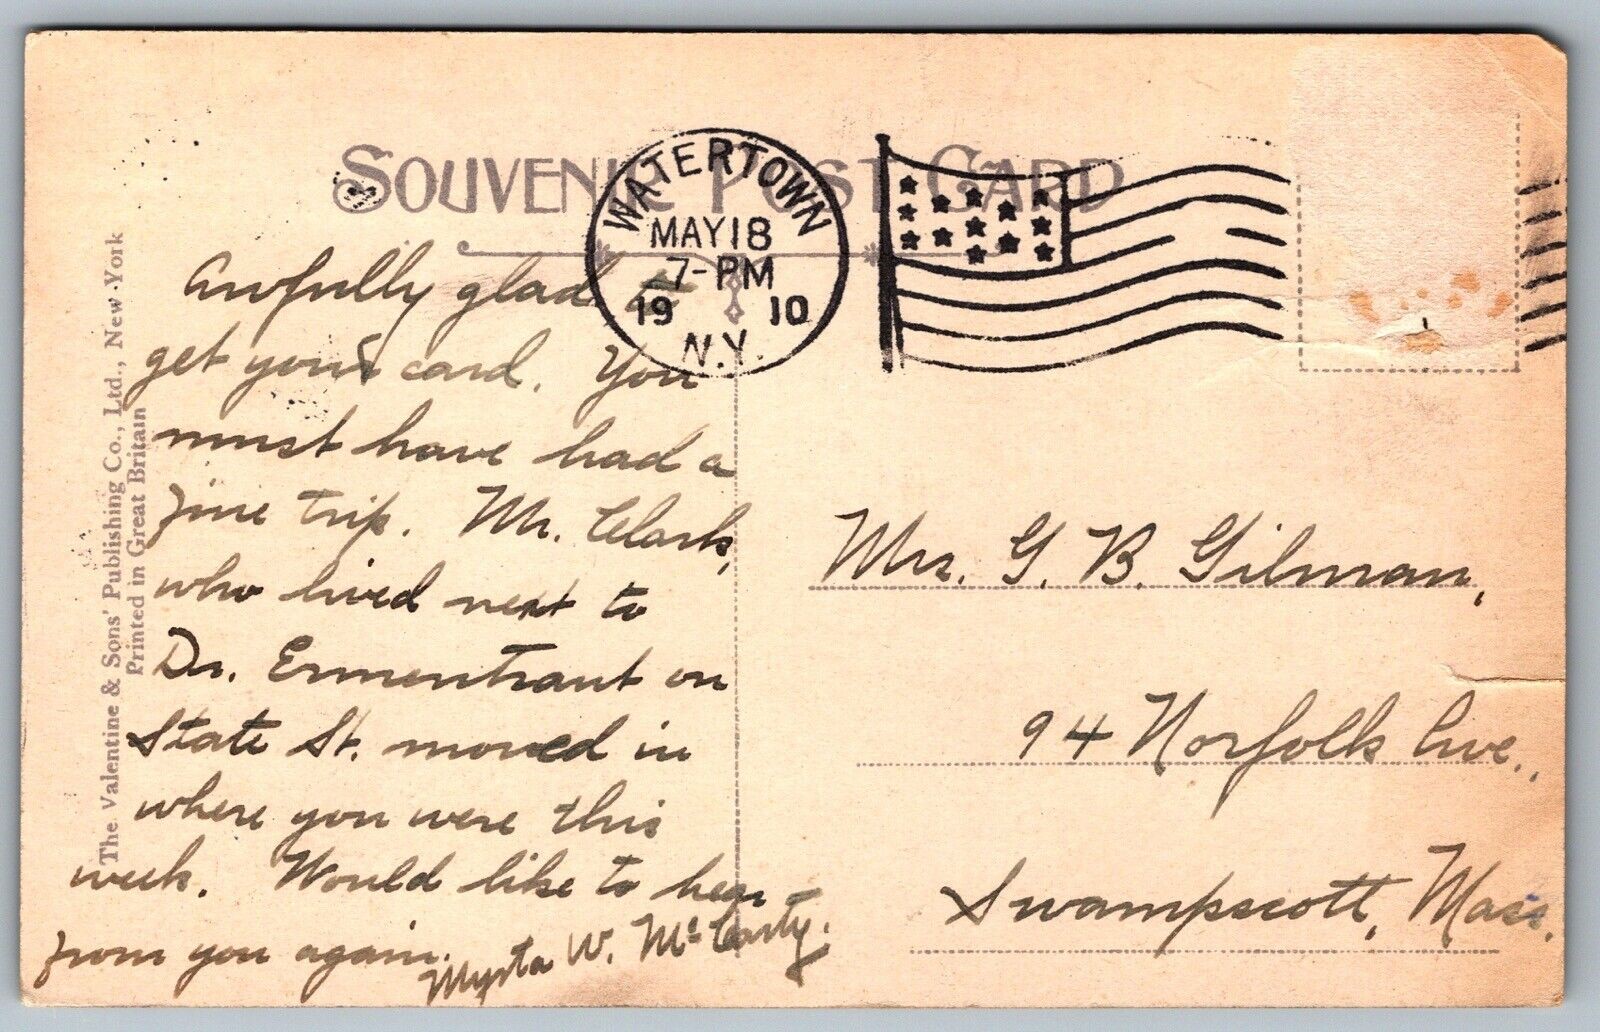 SOUVENIR POST CARD
WATERTOWN
MAY 18
7-PM
19 10
N.Y.
The Valentine & Sons' Publishing Co., Ltd., New-York
Printed in Great Britain
Awfully glad to
get your card. You
must have had a
fine trip. Mr. Clark,
who lived next to
Dr. Ermentraut on
State St. moved in
where you were this
week. Would like to hear
from you again.
Myrta W. McCarty.
Mrs. G. B. Gilman,
94 Norfolk Ave.,
Swampscott, Mass.